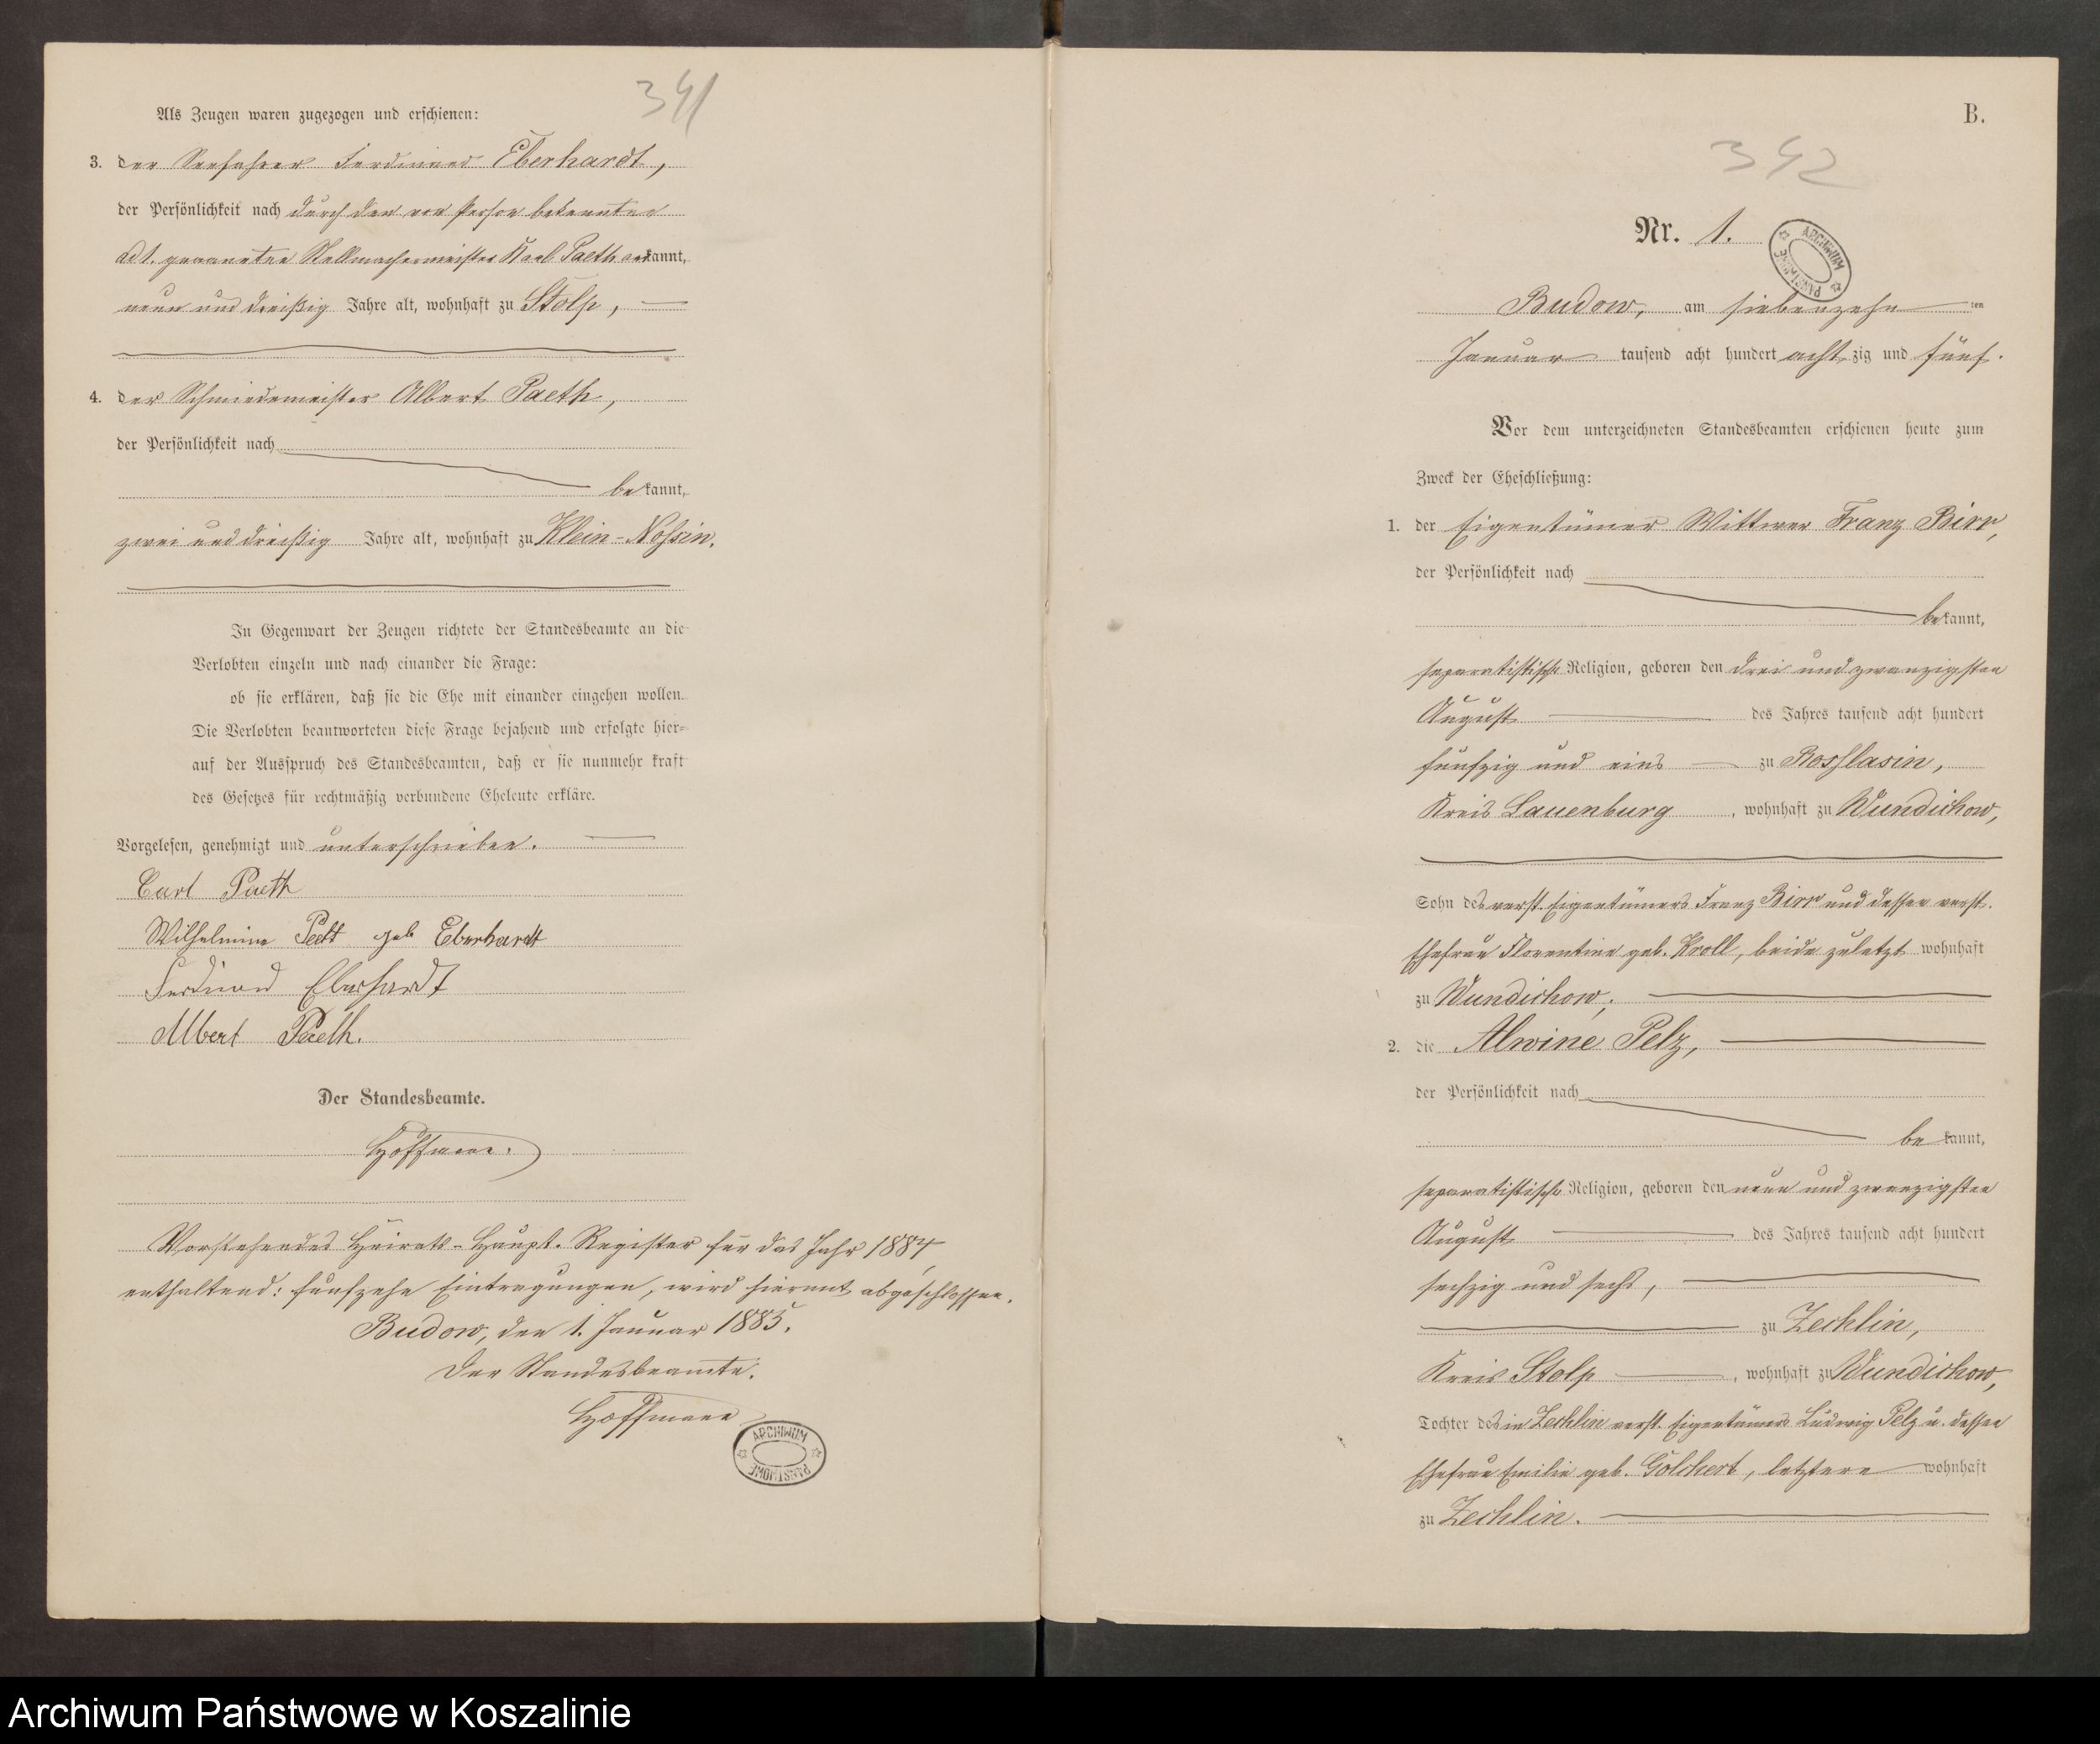 341
Als Zeugen waren zugezogen und erschienen:
3. der Seefahrer Ferdinand Eberhardt,
der Persönlichkeit nach durch den von Person bekannten
ad 1. genannten Stellmachermeister Karl Paeth erkannt,
neun und dreißig Jahre alt, wohnhaft zu Stolp,
4. der Schmiedemeister Albert Paeth,
der Persönlichkeit nach
bekannt,
zwei und dreißig Jahre alt, wohnhaft zu Klein-Nossin.
In Gegenwart der Zeugen richtete der Standesbeamte an die
Verlobten einzeln und nach einander die Frage:
ob sie erklären, daß sie die Ehe mit einander eingehen wollen.
Die Verlobten beantworteten diese Frage bejahend und erfolgte hier-
auf der Ausspruch des Standesbeamten, daß er sie nunmehr kraft
des Gesetzes für rechtmäßig verbundene Eheleute erkläre.
Vorgelesen, genehmigt und unterschrieben.
Carl Paeth
Wilhelmine Peeth geb Eberhardt
Ferdinand Eberhardt
Albert Paeth.
Der Standesbeamte.
Hoffmann.
Vorstehendes Heirats-Haupt-Register für das Jahr 1884
enthaltend: fünfzehn Eintragungen, wird hiermit abgeschlossen.
Budow, den 1. Januar 1885.
Der Standesbeamte.
Hoffmann
ARCHIWUM PAŃSTWOWE
B.
342
Nr. 1.
ARCHIWUM PAŃSTWOWE
Budow, am siebenzehn ten
Januar tausend acht hundert achtzig und fünf.
Vor dem unterzeichneten Standesbeamten erschienen heute zum
Zweck der Eheschließung:
1. der Eigentümer Wittwer Franz Birr,
der Persönlichkeit nach
bekannt,
separatistischer Religion, geboren den drei und zwanzigsten
August des Jahres tausend acht hundert
funfzig und eins zu Rosslasin,
Kreis Lauenburg, wohnhaft zu Wundichow,
Sohn des verst. Eigentümers Franz Birr und dessen verst.
Ehefrau Florentine geb. Kroll, beide zuletzt wohnhaft
zu Wundichow,
2. die Alwine Pelz,
der Persönlichkeit nach
bekannt,
separatistischer Religion, geboren den neun und zwanzigsten
August des Jahres tausend acht hundert
sechzig und sechs,
zu Zechlin,
Kreis Stolp, wohnhaft zu Wundichow,
Tochter des in Zechlin verst. Eigentümers Ludwig Pelz u. dessen
Ehefrau Emilie geb. Golchert, letztere wohnhaft
zu Zechlin.
Archiwum Państwowe w Koszalinie